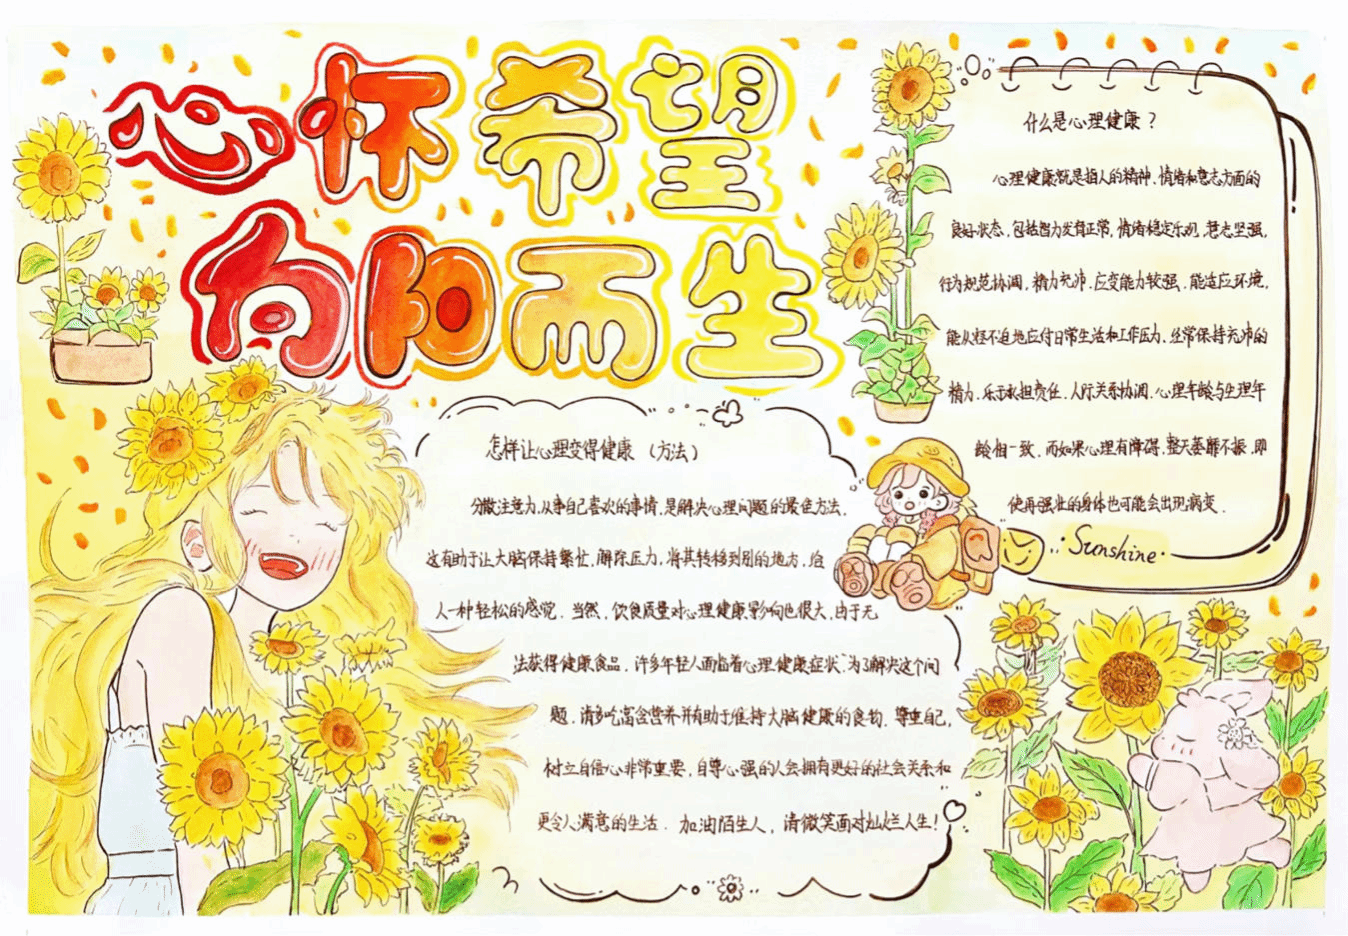 心怀希望
向阳而生
什么是心理健康？
心理健康就是指人的精神、情绪和意志方面的
良好状态，包括智力发育正常，情绪稳定乐观，意志坚强，
行为规范协调，精力充沛，应变能力较强，能适应环境，
能从轻不迫地应付日常生活和工作压力，经常保持充沛的
精力，乐于承担责任，人际关系协调，心理年龄与生理年
龄相一致，而如果心理有障碍，整天萎靡不振，即
使再强壮的身体也可能会出现病变．
Sunshine
怎样让心理变得健康（方法）
分散注意力，从事自己喜欢的事情，是解决心理问题的最佳方法，
这有助于让大脑保持繁忙，解除压力，将其转移到别的地方，给
人一种轻松的感觉．当然，饮食质量对心理健康影响也很大，由于无
法获得健康食品，许多年轻人面临着心理健康症状．为了解决这个问
题，请多吃富含营养并有助于维持大脑健康的食物．尊重自己，
树立自信心非常重要，自尊心强的人会拥有更好的社会关系和
更令人满意的生活．加油陌生人，请微笑面对灿烂人生！